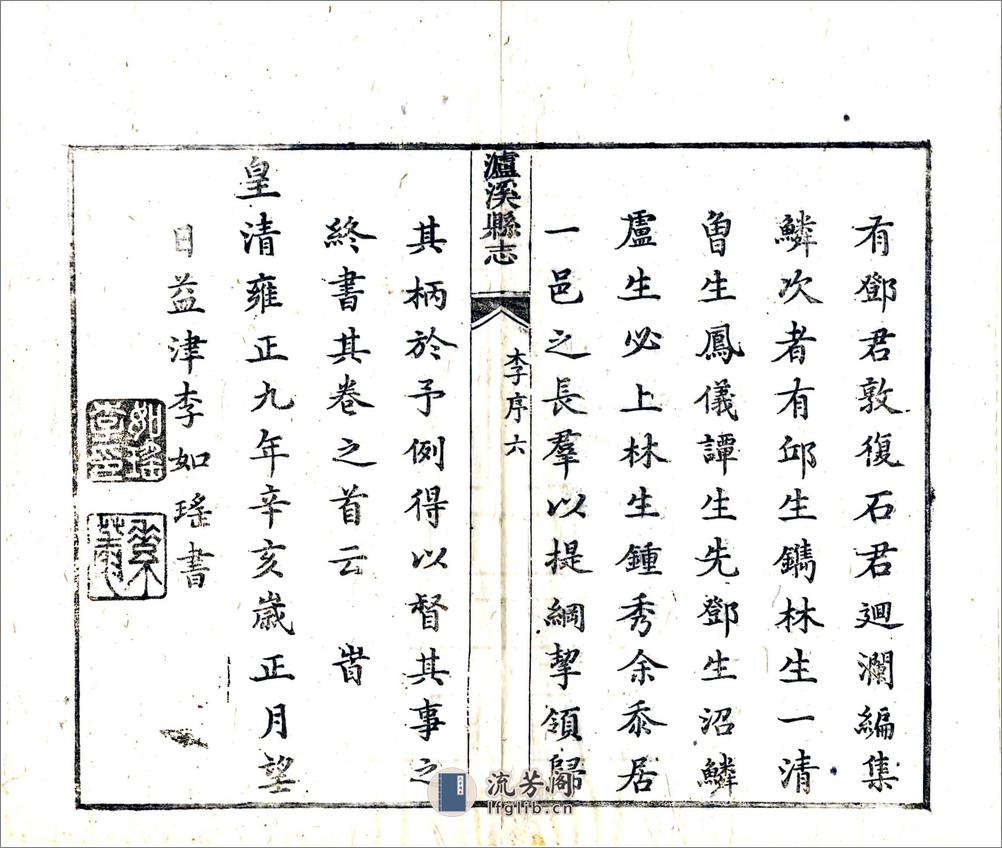 有鄧君敦復石君迴瀾編集
鱗次者有邱生鐫林生一清
曾生鳳儀譚生先鄧生沼鱗
盧生必上林生鍾秀余忝居
一邑之長羣以提綱挈領歸
瀘溪縣志
李序六
其柄於予例得以督其事之
終書其卷之首云　旹
皇清雍正九年辛亥歲正月望
日益津李如瑤書
如瑤
流芳阁
lfglib.cn